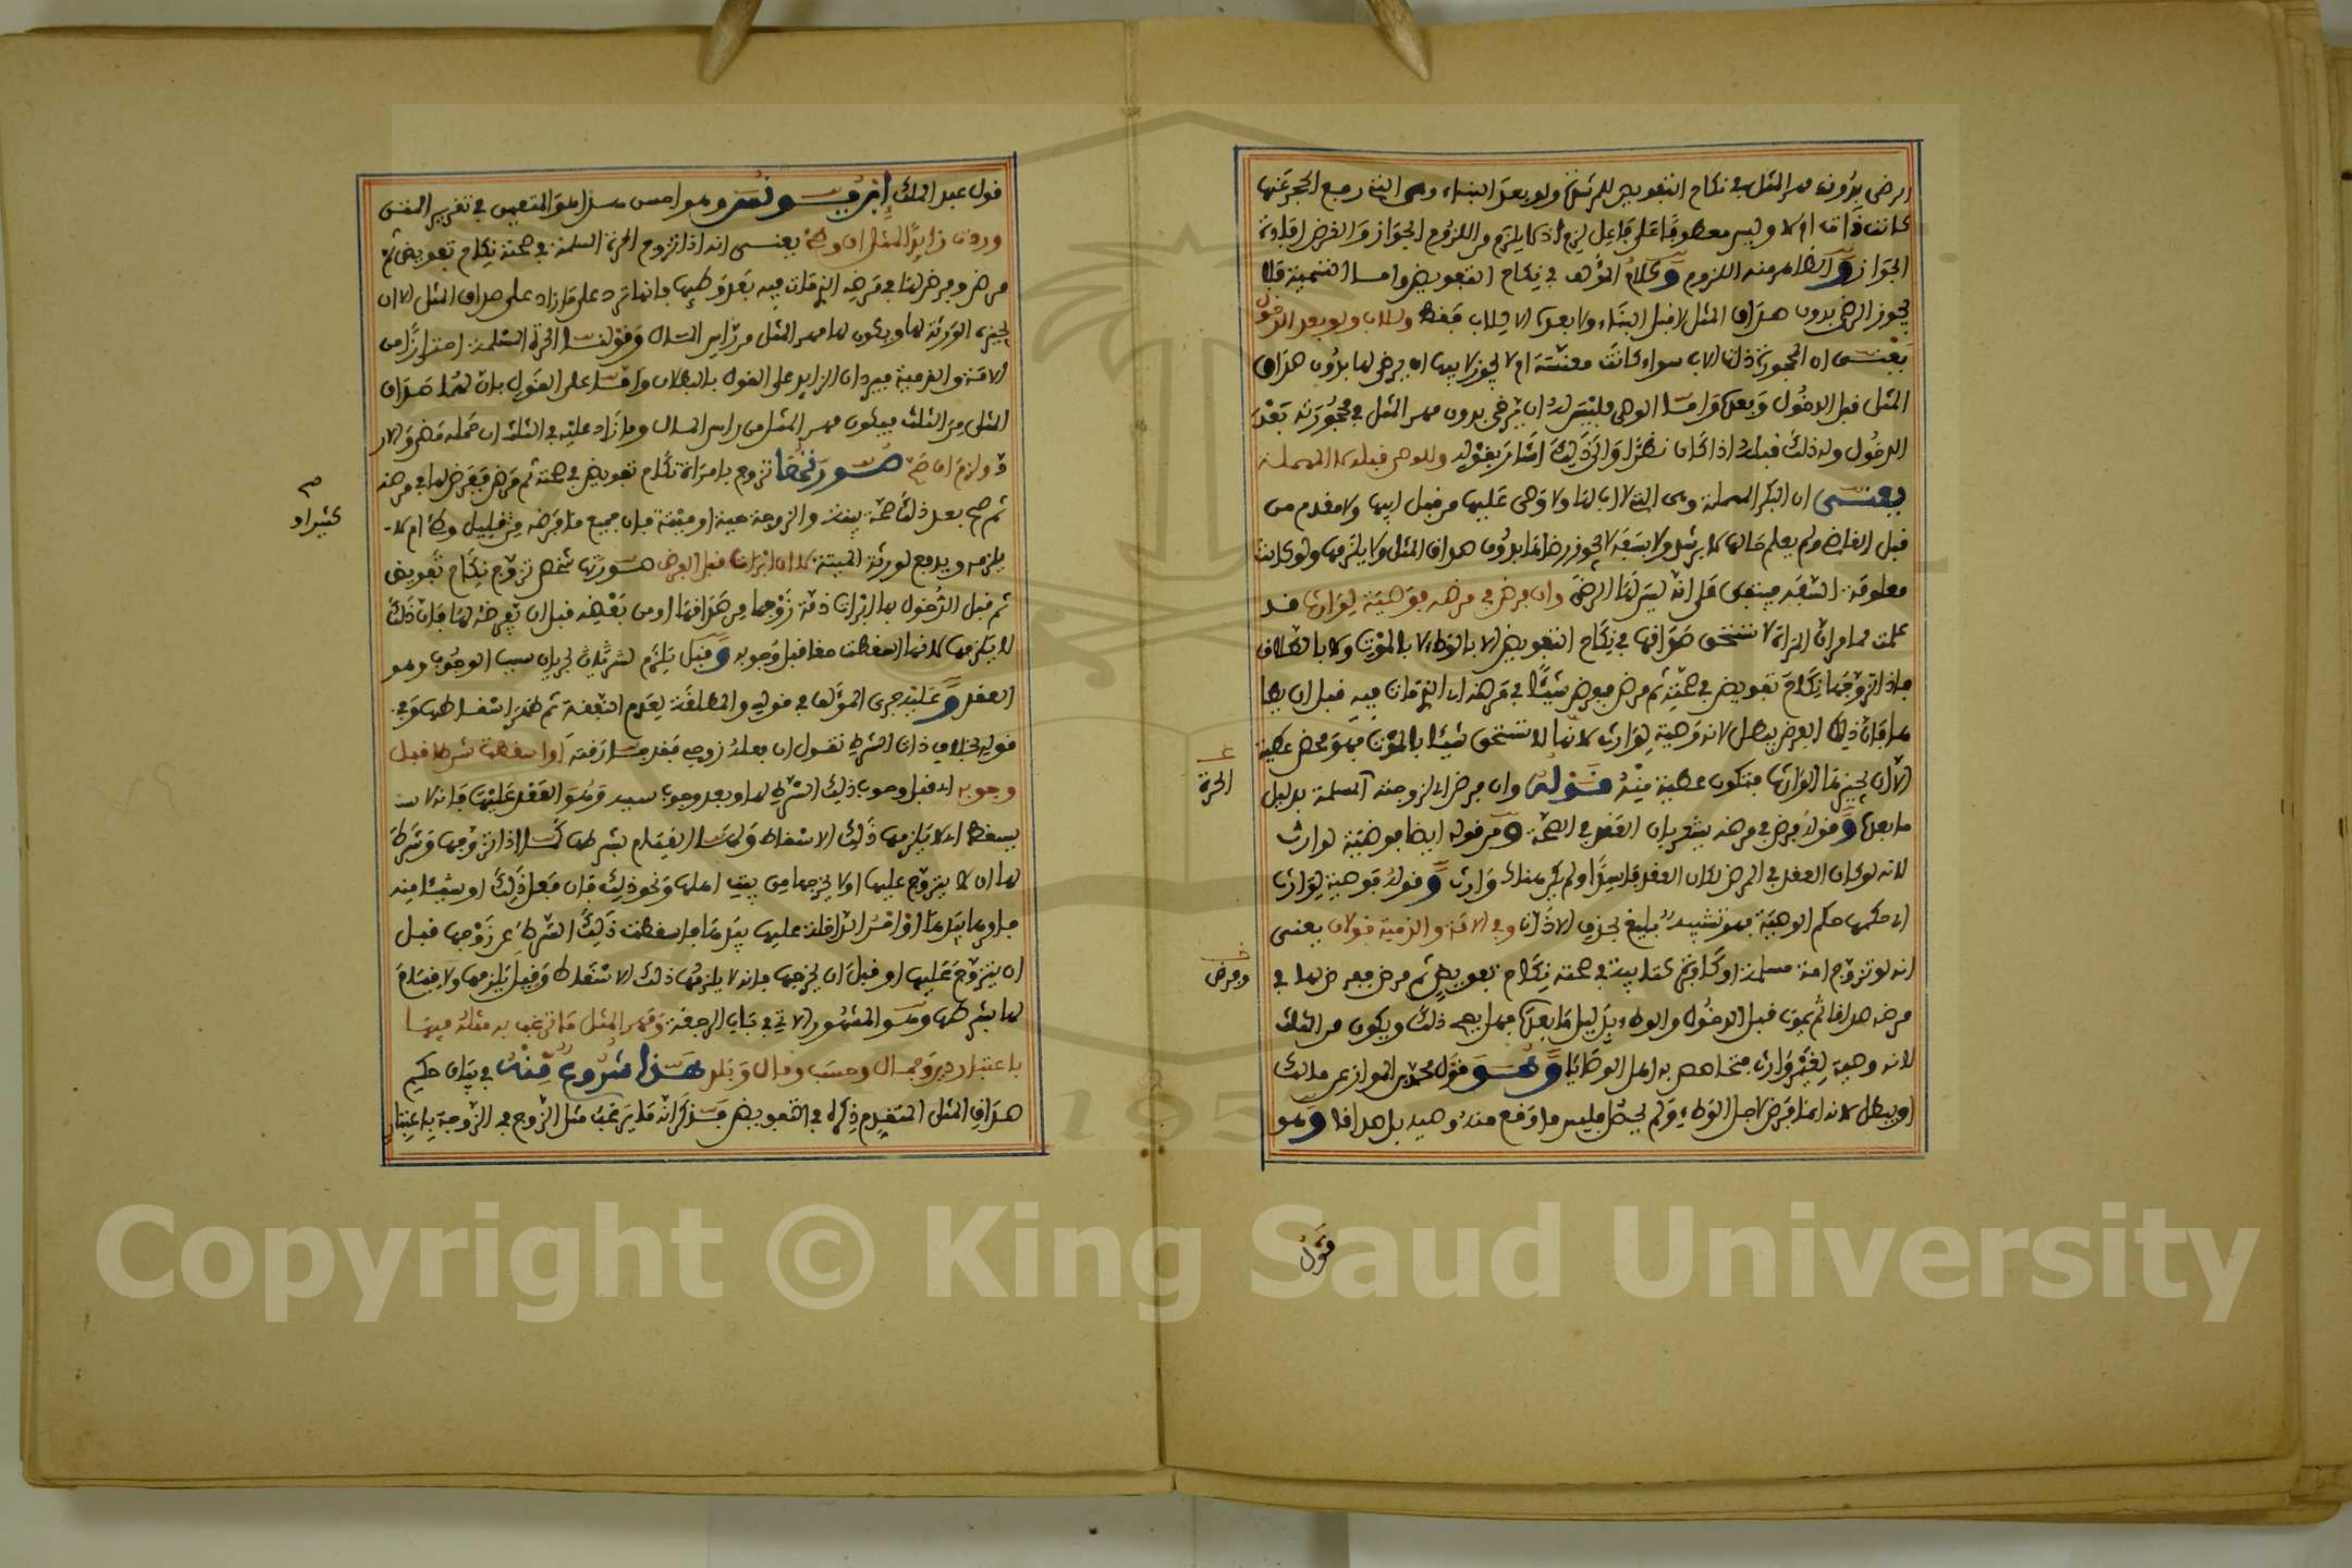 الرضى بدون مهر المثل في نكاح التفويض للمرشدة ولو بعد البناء وهي التي رفع الحجر عنها
كانت ذات اب ام لا وليس معطوفا على فاعل لزم اذ لا يلزم من اللزوم الجواز والغرض افادة
الجواز والظاهر منه اللزوم وكلام المؤلف في نكاح التفويض واما التسمية فلا
يجوز الرضى بدون صداق المثل لا قبل البناء ولا بعده الا للاب فقط وللاب ولو بعد الدخول
يعني ان المجبرة ذات الاب سواء كانت معنسة ام لا يجوز لابيها ان يرضى لها بدون صداق
المثل قبل الدخول وبعده واما الوصي فليس له ان يرضى بدون مهر المثل في محجورته بعد
الدخول وله ذلك قبله اذا كان نظرا والى ذلك اشار بقوله وللوصي قبله لا المهملة
يعني ان البكر المهملة وهي التي لا اب لها ولا وصي عليها من قبل ابيها ولا مقدم من
قبل القاضي ولم يعلم حالها لا برشد ولا بسفه لا يجوز رضاها بدون صداق المثل ولا يلزمها ولو كانت
معلومة السفه فيتفق على انه ليس لها الرضى وان فرض في مرضه فوصية لوارث قد
علمت مما مر ان المراة لا تستحق صداقها في نكاح التفويض الا بالوطء لا بالموت ولا بالطلاق
فاذا تزوجها نكاح تفويض في صحته ثم مرض ففرض لها شيئا في مرضه الذي مات فيه قبل ان يطا
ها فان ذلك الفرض يبطل لانه وصية لوارث لانها لا تستحق شيئا بالموت فهو محض عطية
الا ان يجيزها الوارث فتكون عطية منه قوله وان فرض اي لزوجته المسلمة بدليل
ما بعده وقوله فرض في مرضه يشعر بان العقد في الصحة ومن قوله ايضا فوصية لوارث
لانه لو كان العقد في المرض لكان العقد فاسدا ولم يكن هناك وارث وقوله فوصية لوارث
اي حكمها حكم الوصية فهو تشبيه بليغ بحذف الاداة وفي الامة والذمية قولان يعني
انه لو تزوج امة مسلمة او كافرة كتابية في صحته نكاح تفويض ثم مرض ففرض لها في
مرضه صداقا ثم يموت قبل الدخول والوطء بدليل ما بعده فهل يصح ذلك ويكون من الثلث
لانه وصية لغير وارث فتحاصص به اهل الوصايا وهو قول محمد بن المواز عن مالك
او يبطل لانه انما فرض لاجل الوطء ولم يحصل فليس ما وقع منه وصية بل صداقا وهو
قول
ع
الحرة
خ
ومرض
قول عبد الملك ابن يونس وهو احسن
وردت زايد المثل ان وطئ يعني انه اذا تزوج الحرة المسلمة في صحته نكاح تفويض ثم
مرض وفرض لها في مرضه الذي مات فيه بعد وطئها فانها ترد على ما زاد على صداق المثل الا ان
يجيزه الورثة لها ويكون لها مهر المثل من راس المال وقولنا الحرة المسلمة احترازا من
الامة والذمية فيردان الزايد على القول بالبطلان واما على القول بان لهما صداق
المثل من الثلث فيكون مهر المثل من راس المال وما زاد عليه في الثلث ان حمله مضى والا
ولزم ان صح صورتها تزوج بامراة نكاح تفويض في صحته ثم مرض ففرض لها في مرضه
ثم صح بعد ذلك صحة بينة والزوجة حية او ميتة فان جميع ما فرضه من قليل وكثير ام لا
يلزمه ويدفع لورثة الميتة لا ان ابرات قبل الفرض صورتها شخص تزوج نكاح تفويض
ثم قبل الدخول بها ابرات ذمة زوجها من صداقها او من بعضه قبل ان يفرضه لها فان ذلك
لا يلزمها لانها اسقطت حقا قبل وجوبه وقيل يلزم لشرتان لجريان سبب الوجوب وهو
العقد وعليه جرى المؤلف في قوله والمطلقة لعدم النفقة ثم ظهر اسقاطها وفي
قوله بخلاف ذات الشرط تقول ان فعله زوجي فقد فارقته او اسقطت شرطا قبل
وجوبه اي قبل وجوب ذلك الشرط لها وبعد وجوب سببه وهو العقد عليها فانه لا
يسقط اي لا يلزمها ذلك الاسقاط ولها القيام بشرطها كما اذا تزوجها وشرط
لها ان لا يتزوج عليها او لا يخرجها من بيت اهلها ونحو ذلك فان فعل ذلك او شيئا منه
فامرها بيدها او امر الداخلة عليها بيدها فاسقطت ذلك الشرط عن زوجها قبل
ان يتزوج عليها او قبل ان يخرجها فانه لا يلزمها ذلك الاسقاط وقيل يلزمها ولا قيام
لها بشرطها وهو المشهور الاتي في باب الرجعة ومهر المثل ما يرغب به مثله فيها
باعتبار دين وجمال وحسب ومال وبلد هذا شروع منه في بيان حكم
صداق المثل المتقدم ذكره في التفويض فذكر انه ما يرغب مثل الزوج في الزوجة باعتبار
صح
كثيرا و
Copyright © King Saud University
195